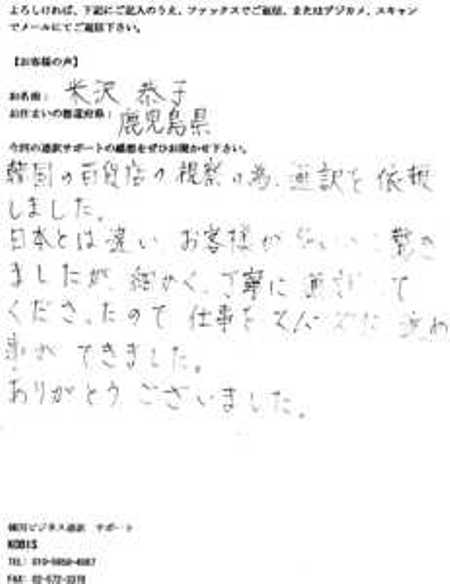 よろしければ、下記にご記入のうえ、ファックスでご返信、またはデジカメ、スキャン
でメールにてご返信下さい。
【お客様の声】
お名前： 米沢 恭子
お住まいの都道府県： 鹿児島県
今回の通訳サポートの感想をぜひお聞かせ下さい。
韓国の百貨店の視察の為、通訳を依頼
しました。
日本とは違い お客様が 驚き
ましたが、細かく、丁寧に 通訳して
くださったので 仕事を スムーズに 進め
事が できました。
ありがとうございました。
韓国ビジネス通訳 サポート
KOBIS
TEL:
FAX: 02-572-3370